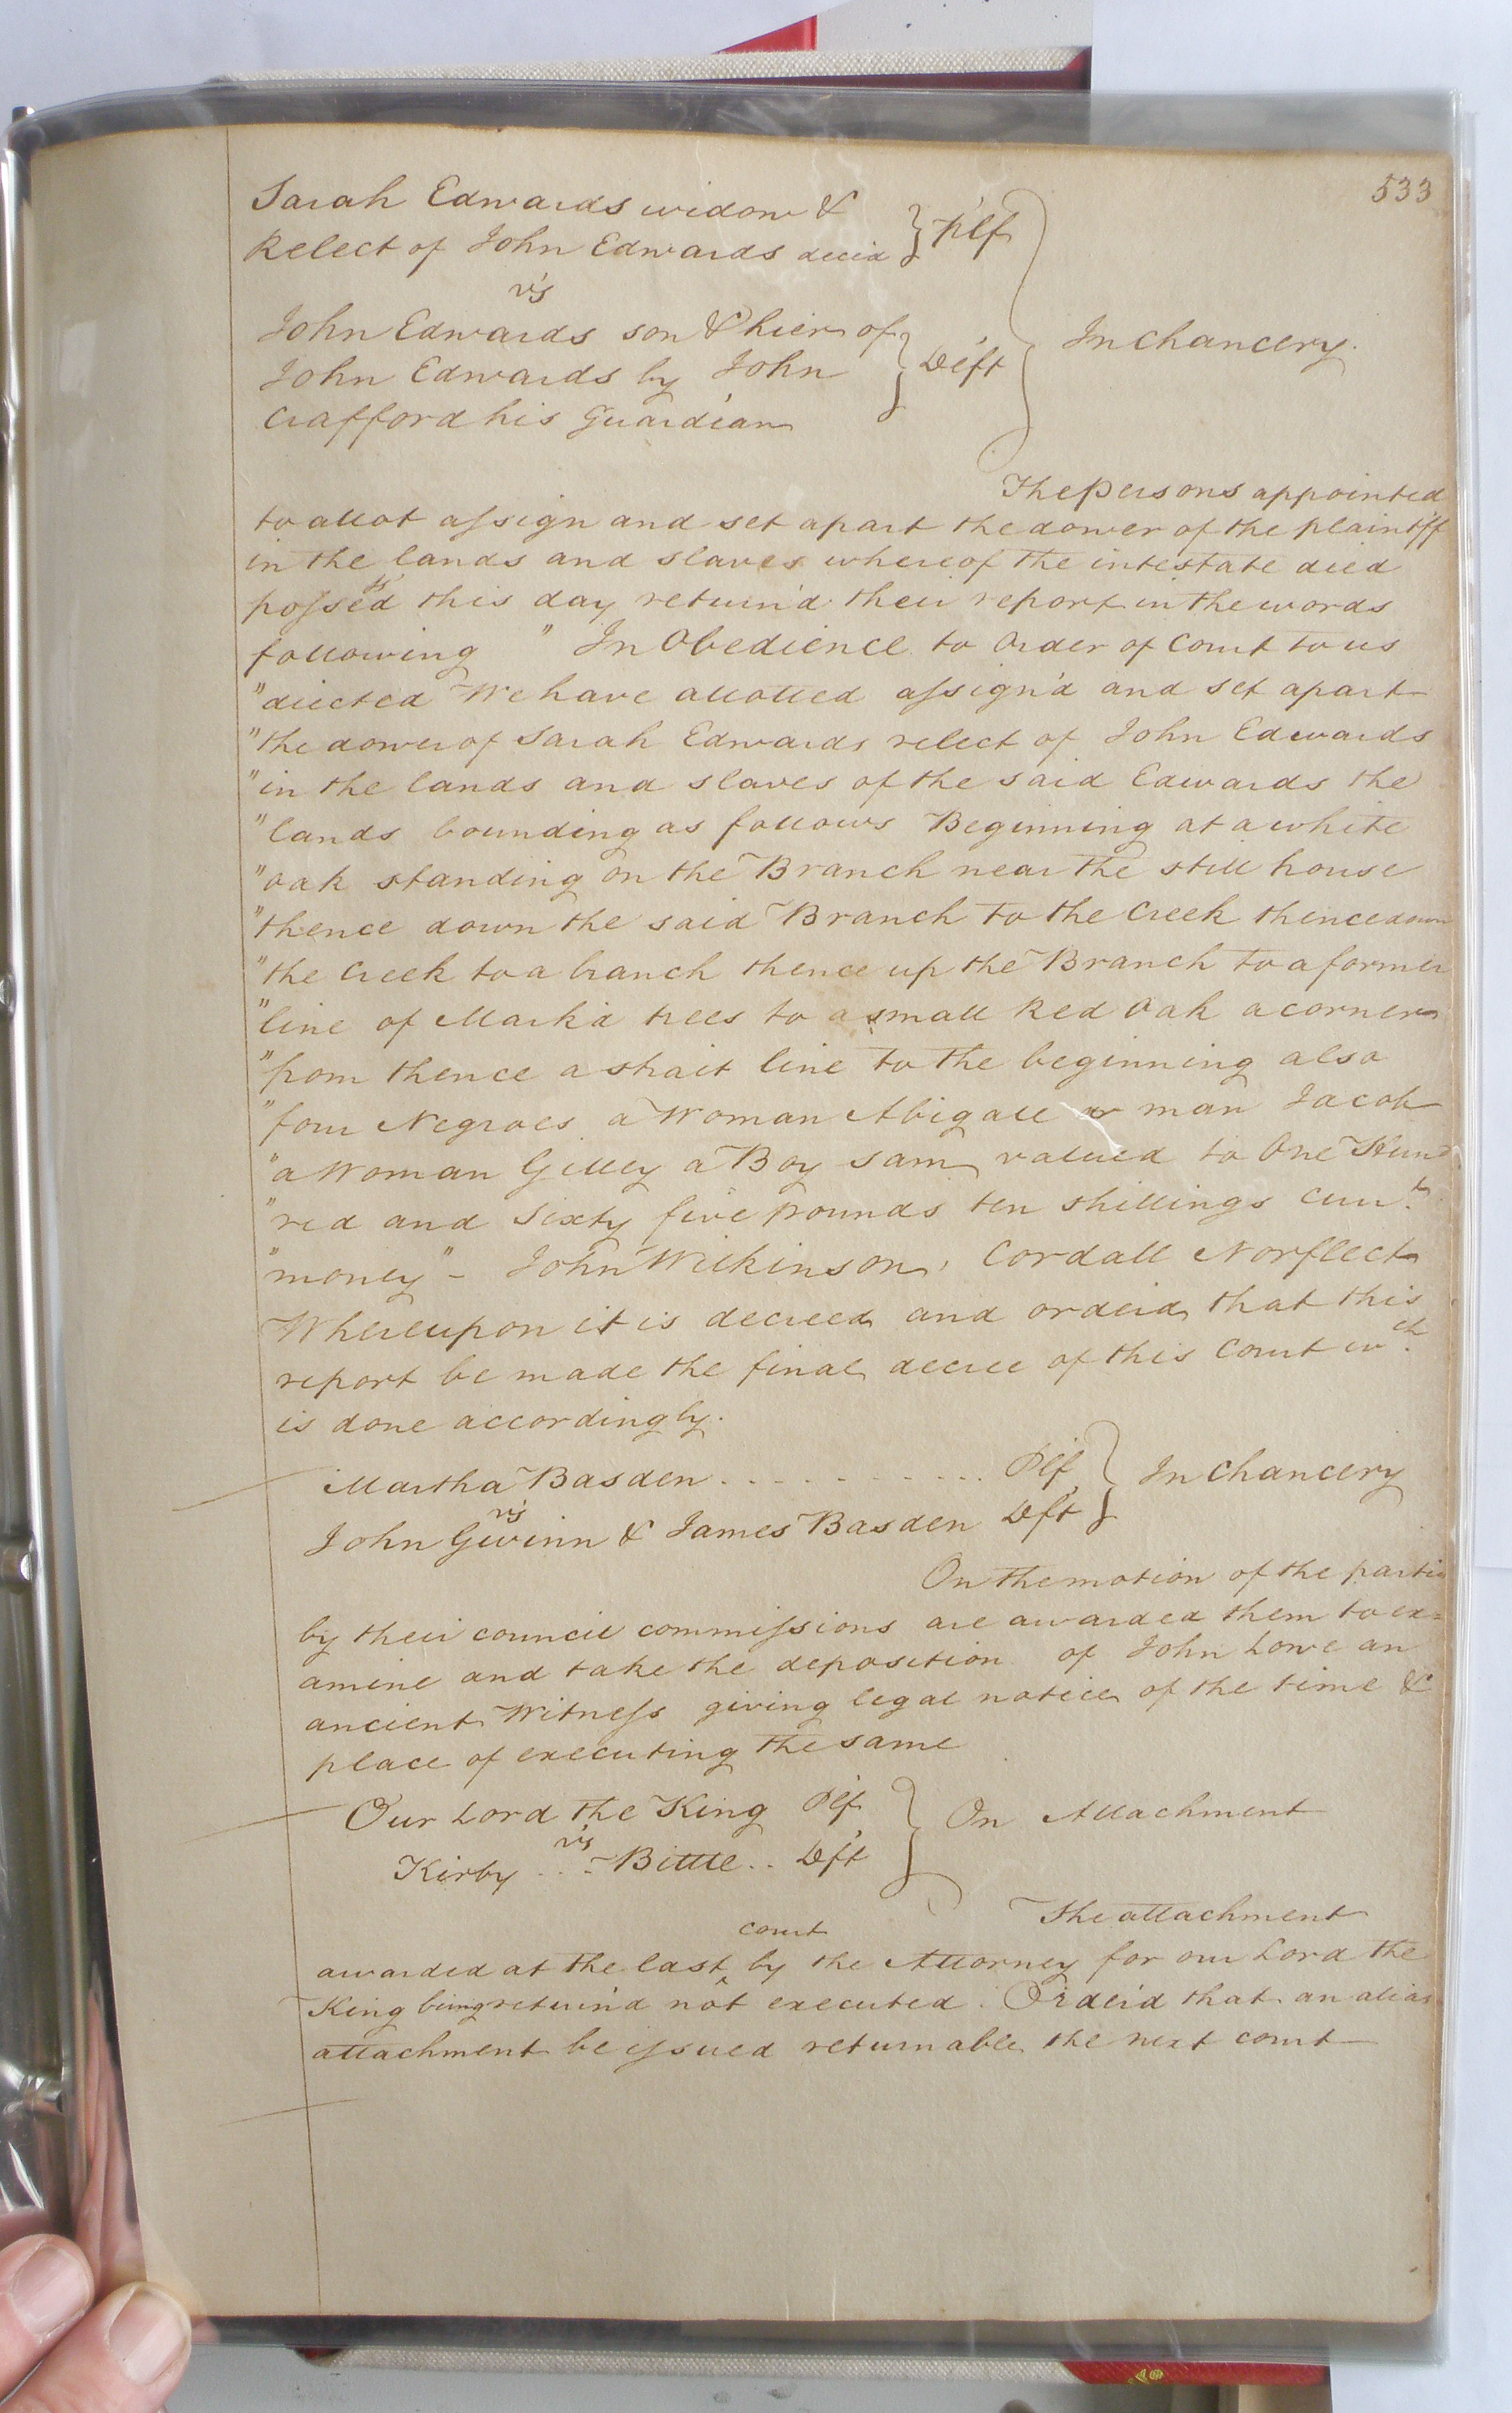 533
Sarah Edwards widow &
Relect of John Edwards decid } Plf
vs
John Edwards son & hier of
John Edwards by John } Deft } In Chancery.
Crafford his Guardian
The persons appointed
to allot assign and set apart the dower of the plaintiff
in the lands and slaves whereof the intestate died
possessd this day return'd their report in the words
following " In Obedience to Order of Court to us
"directed We have allotted assign'd and set apart
"the dower of Sarah Edwards relect of John Edwards
"in the lands and slaves of the said Edwards the
"lands bounding as follows Beginning at a white
"oak standing on the Branch near the still house
"thence down the said Branch to the Creek thence down
"the Creek to a branch thence up the Branch to a former
"line of Mark'd trees to a small Red Oak a corner
"from thence a strait line to the beginning also
"four Negroes a Woman Abigall a man Jacob
"a Woman Gilley a Boy Sam valued to One Hund
"red and Sixty five pounds ten shillings Curr.t
"money" - John Wilkinson, Cordall Norfleet
Whereupon it is decreed and orderd that this
report be made the final decree of this Court wch.
is done accordingly.
Martha Basden . . . . . . . . . . . Plf } In Chancery
vs
John Gwinn & James Basden Deft
On the motion of the partie
by their council commissions are awarded them to ex=
amine and take the deposition of John Lowe an
ancient Witness giving legal notice of the time &
place of executing the same
Our Lord the King Plf } On Attachment
vs
Kirby . . . Bittle . . Deft
The attachment
awarded at the last court by the Attorney for our Lord the
King being return'd not executed. Order'd that an alias
attachment be issued returnable the next court